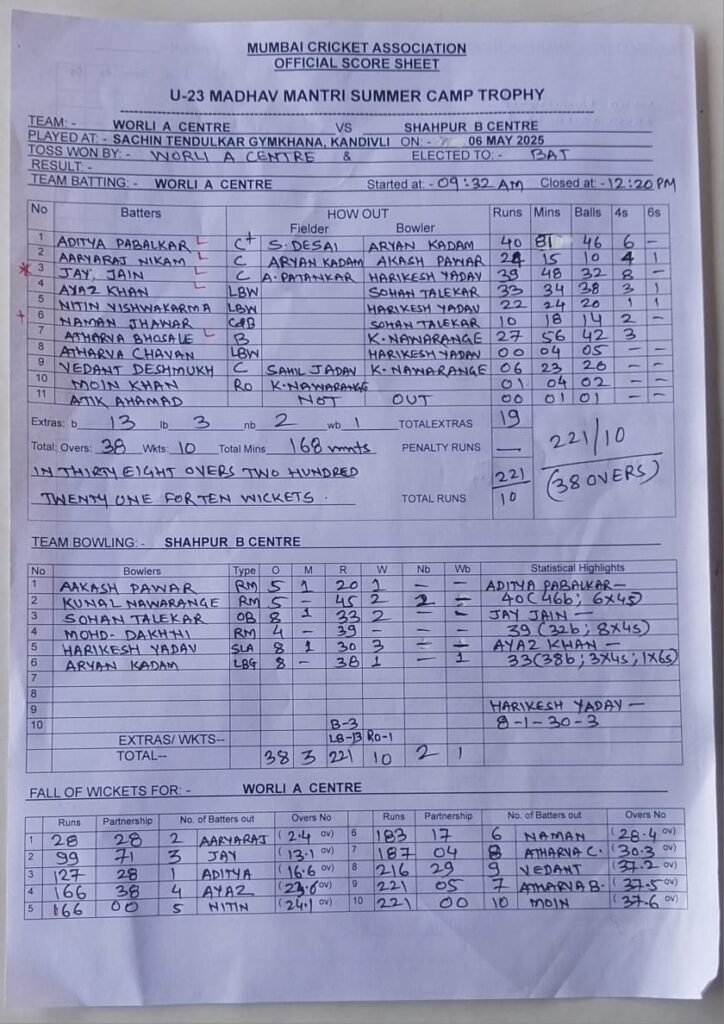 MUMBAI CRICKET ASSOCIATION
OFFICIAL SCORE SHEET
U-23 MADHAV MANTRI SUMMER CAMP TROPHY
TEAM: - WORLI A CENTRE VS SHAHPUR B CENTRE
PLAYED AT: - SACHIN TENDULKAR GYMKHANA, KANDIVLI ON: - 06 MAY 2025
TOSS WON BY: - WORLI A CENTRE & ELECTED TO: - BAT
RESULT: -
TEAM BATTING: - WORLI A CENTRE Started at: - 09:32 AM Closed at: - 12:20 PM
No Batters HOW OUT Runs Mins Balls 4s 6s
Fielder Bowler
1 ADITYA PABALKAR L C+ S. DESAI ARYAN KADAM 40 81 46 6 -
2 AARYARAJ NIKAM L C ARYAN KADAM AKASH PAWAR 24 15 10 4 1
* 3 JAY JAIN L C A. PATANKAR HARIKESH YADAV 39 48 32 8 -
4 AYAZ KHAN L LBW SOHAN TALEKAR 33 34 38 3 1
5 NITIN VISHWAKARMA LBW HARIKESH YADAV 22 24 20 1 1
+ 6 NAMAN JHAWAR C&B SOHAN TALEKAR 10 18 14 2 -
7 ATHARVA BHOSALE L B K. NAWARANGE 27 56 42 3
8 ATHARVA CHAVAN LBW HARIKESH YADAV 00 04 05 - -
9 VEDANT DESHMUKH C SAHIL JADAV K. NAWARANGE 06 23 20 - -
10 MOIN KHAN RO K. NAWARANGE 01 04 02 - -
11 ATIK AHAMAD NOT OUT 00 01 01 - -
Extras: b 13 lb 3 nb 2 wb 1 TOTALEXTRAS 19
Total: Overs: 38 Wkts: 10 Total Mins 168 mnts PENALTY RUNS — 221/10
IN THIRTY EIGHT OVERS TWO HUNDRED 221 (38 OVERS)
TWENTY ONE FOR TEN WICKETS. TOTAL RUNS 10
TEAM BOWLING: - SHAHPUR B CENTRE
No Bowlers Type O M R W Nb Wb Statistical Highlights
1 AAKASH PAWAR RM 5 1 20 1 - - ADITYA PABALKAR -
2 KUNAL NAWARANGE RM 5 - 45 2 2 - 40 (46b; 6x4s)
3 SOHAN TALEKAR OB 8 1 33 2 - - JAY JAIN -
4 MOHD- DAKHNI RM 4 - 39 - - - 39 (32b; 8x4s)
5 HARIKESH YADAV SLA 8 1 30 3 - - AYAZ KHAN -
6 ARYAN KADAM LBG 8 - 38 1 - 1 33 (38b; 3x4s; 1x6s)
7
8
9 HARIKESH YADAV -
10 B-3 8-1-30-3
EXTRAS/ WKTS-- LB-13 RO-1
TOTAL-- 38 3 221 10 2 1
FALL OF WICKETS FOR: - WORLI A CENTRE
Runs Partnership No. of Batters out Overs No Runs Partnership No. of Batters out Overs No
1 28 28 2 AARYARAJ (2.4 ov) 6 183 17 6 NAMAN (28.4 ov)
2 99 71 3 JAY (13.1 ov) 7 187 04 8 ATHARVA C. (30.3 ov)
3 127 28 1 ADITYA (16.6 ov) 8 216 29 9 VEDANT (37.2 ov)
4 166 38 4 AYAZ (23.6 ov) 9 221 05 7 ATHARVA B. (37.5 ov)
5 166 00 5 NITIN (24.1 ov) 10 221 00 10 MOIN (37.6 ov)